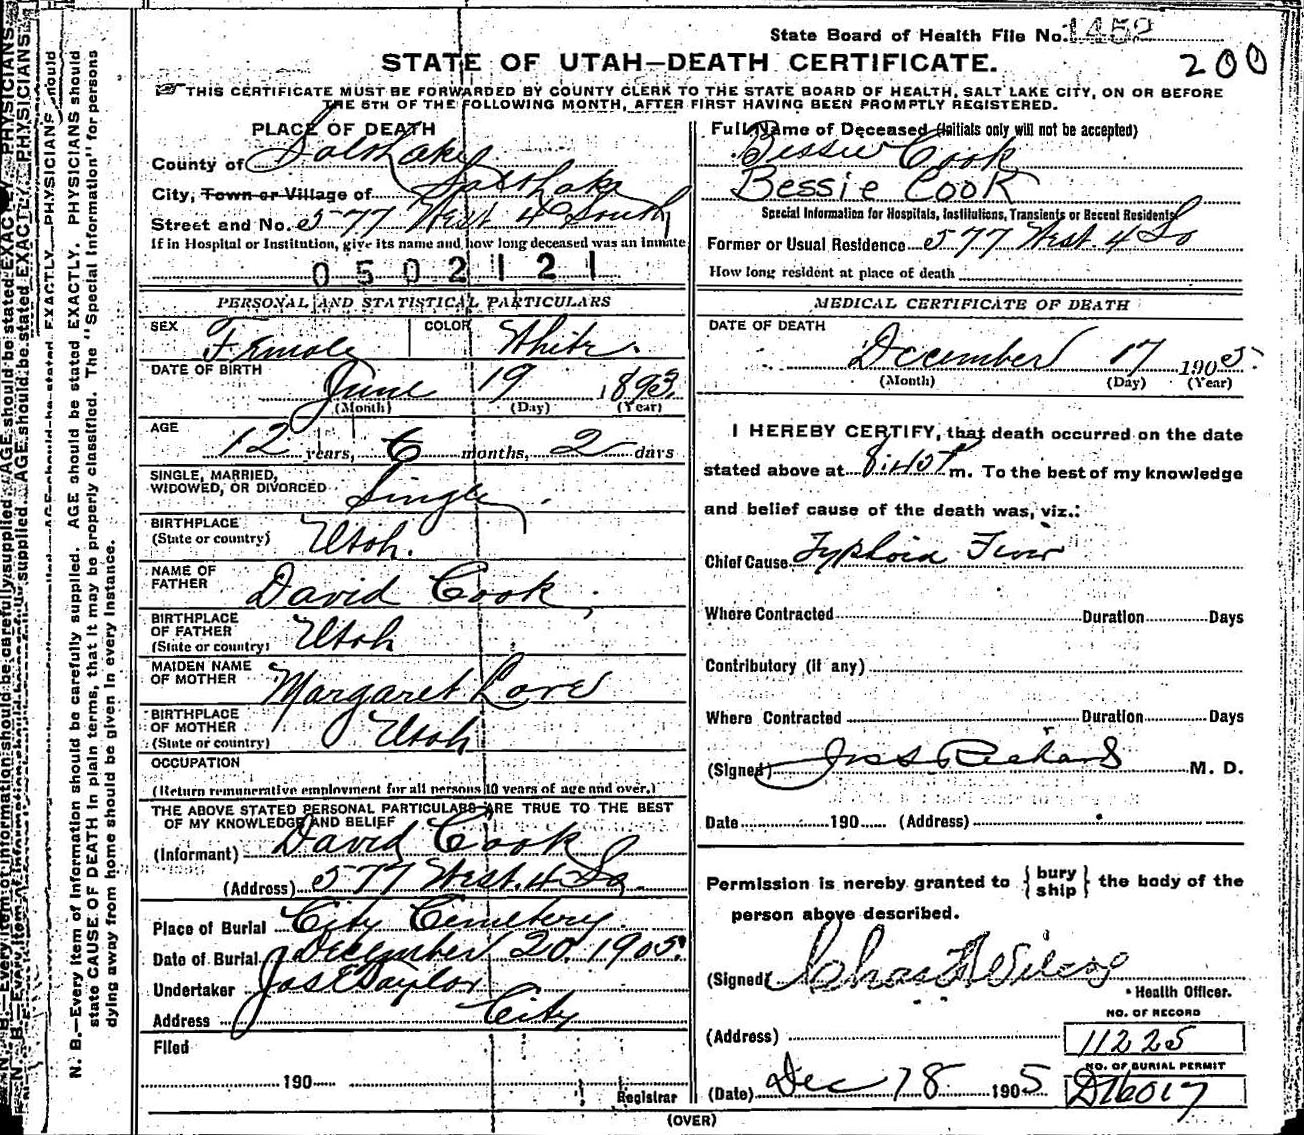 State Board of Health File No. 1452
200
STATE OF UTAH—DEATH CERTIFICATE.
THIS CERTIFICATE MUST BE FORWARDED BY COUNTY CLERK TO THE STATE BOARD OF HEALTH, SALT LAKE CITY, ON OR BEFORE
THE 5TH OF THE FOLLOWING MONTH, AFTER FIRST HAVING BEEN PROMPTLY REGISTERED.
PLACE OF DEATH
County of Salt Lake
City, Town or Village of Salt Lake
Street and No. 577 West 4 South
If in Hospital or Institution, give its name and how long deceased was an inmate
0502121
PERSONAL AND STATISTICAL PARTICULARS
SEX Female COLOR White.
DATE OF BIRTH
June 19 1893
(Month) (Day) (Year)
AGE
12 years, 6 months, 2 days
SINGLE, MARRIED,
WIDOWED, OR DIVORCED Single
BIRTHPLACE
(State or country) Utah.
NAME OF
FATHER David Cook
BIRTHPLACE
OF FATHER
(State or country) Utah
MAIDEN NAME
OF MOTHER Margaret Love
BIRTHPLACE
OF MOTHER
(State or country) Utah
OCCUPATION
(Return remunerative employment for all persons 10 years of age and over.)
THE ABOVE STATED PERSONAL PARTICULARS ARE TRUE TO THE BEST
OF MY KNOWLEDGE AND BELIEF
(Informant) David Cook
(Address) 577 West. 4 So.
Place of Burial City Cemetery.
Date of Burial December 20. 1905.
Undertaker Jos E Taylor
Address City
Filed
190
Registrar
Full Name of Deceased (Initials only will not be accepted)
Bessie Cook
Bessie Cook
Special Information for Hospitals, Institutions, Transients or Recent Residents
Former or Usual Residence 577 West. 4 So
How long resident at place of death
MEDICAL CERTIFICATE OF DEATH
DATE OF DEATH
December 17 1905.
(Month) (Day) (Year)
I HEREBY CERTIFY, that death occurred on the date
stated above at 8:45 P m. To the best of my knowledge
and belief cause of the death was, viz.:
Chief Cause Typhoid Fever
Where Contracted Duration Days
Contributory (if any)
Where Contracted Duration Days
(Signed) Richards M. D.
Date 190 (Address)
Permission is hereby granted to { bury ship } the body of the
person above described.
(Signed) Chas Wilcox
Health Officer.
NO. OF RECORD
(Address) 11225
NO. OF BURIAL PERMIT
(Date) Dec 18 1905 D16017
(OVER)
N. B.—Every item of information should be carefully supplied. AGE should be stated EXACTLY. PHYSICIANS should
state CAUSE OF DEATH in plain terms, that it may be properly classified. The "Special Information" for persons
dying away from home should be given in every instance.